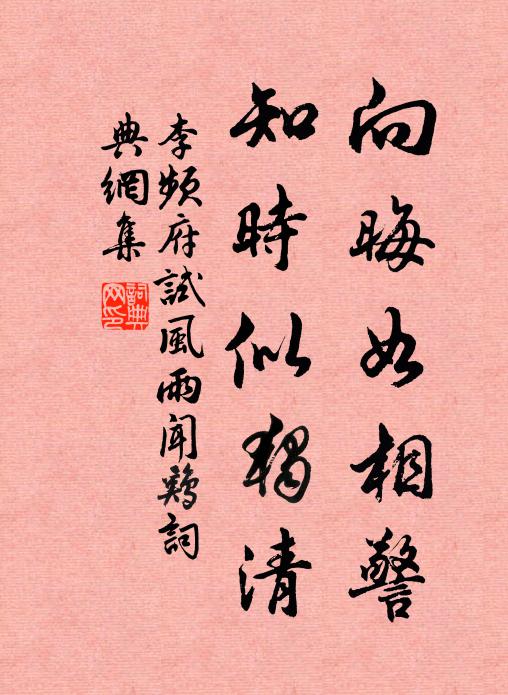 向晦如相警
知時似獨清
李頻府試風雨聞鷄詞
典網集
詞典
网印